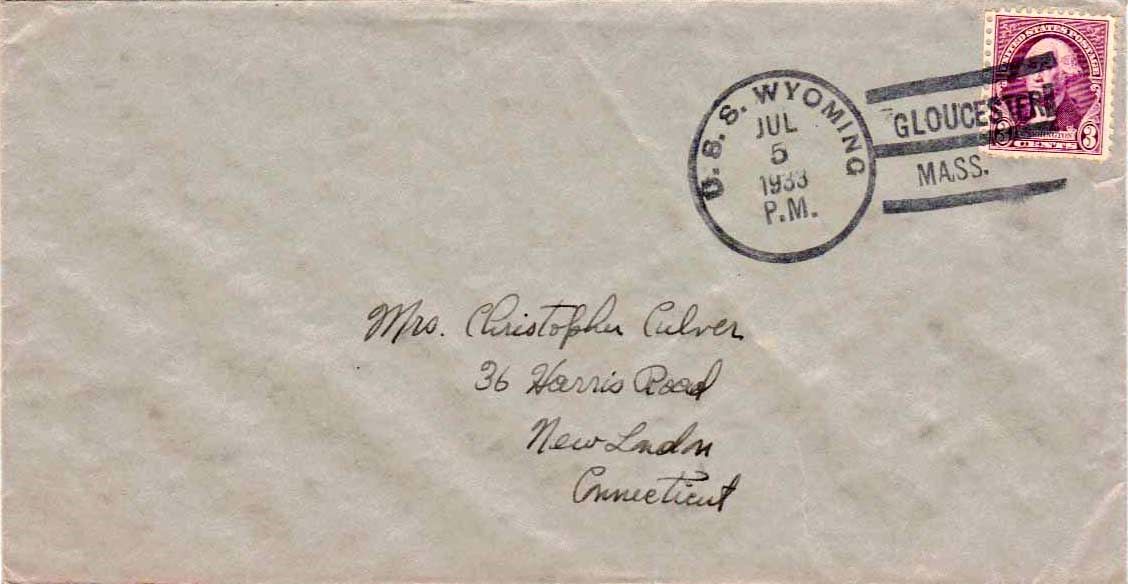 UNITED STATES POSTAGE
WASHINGTON
3 CENTS 3
U.S.S. WYOMING
JUL
5
1933
P.M.
GLOUCESTER
MASS.
Mrs. Christopher Culver
36 Harris Road
New London
Connecticut